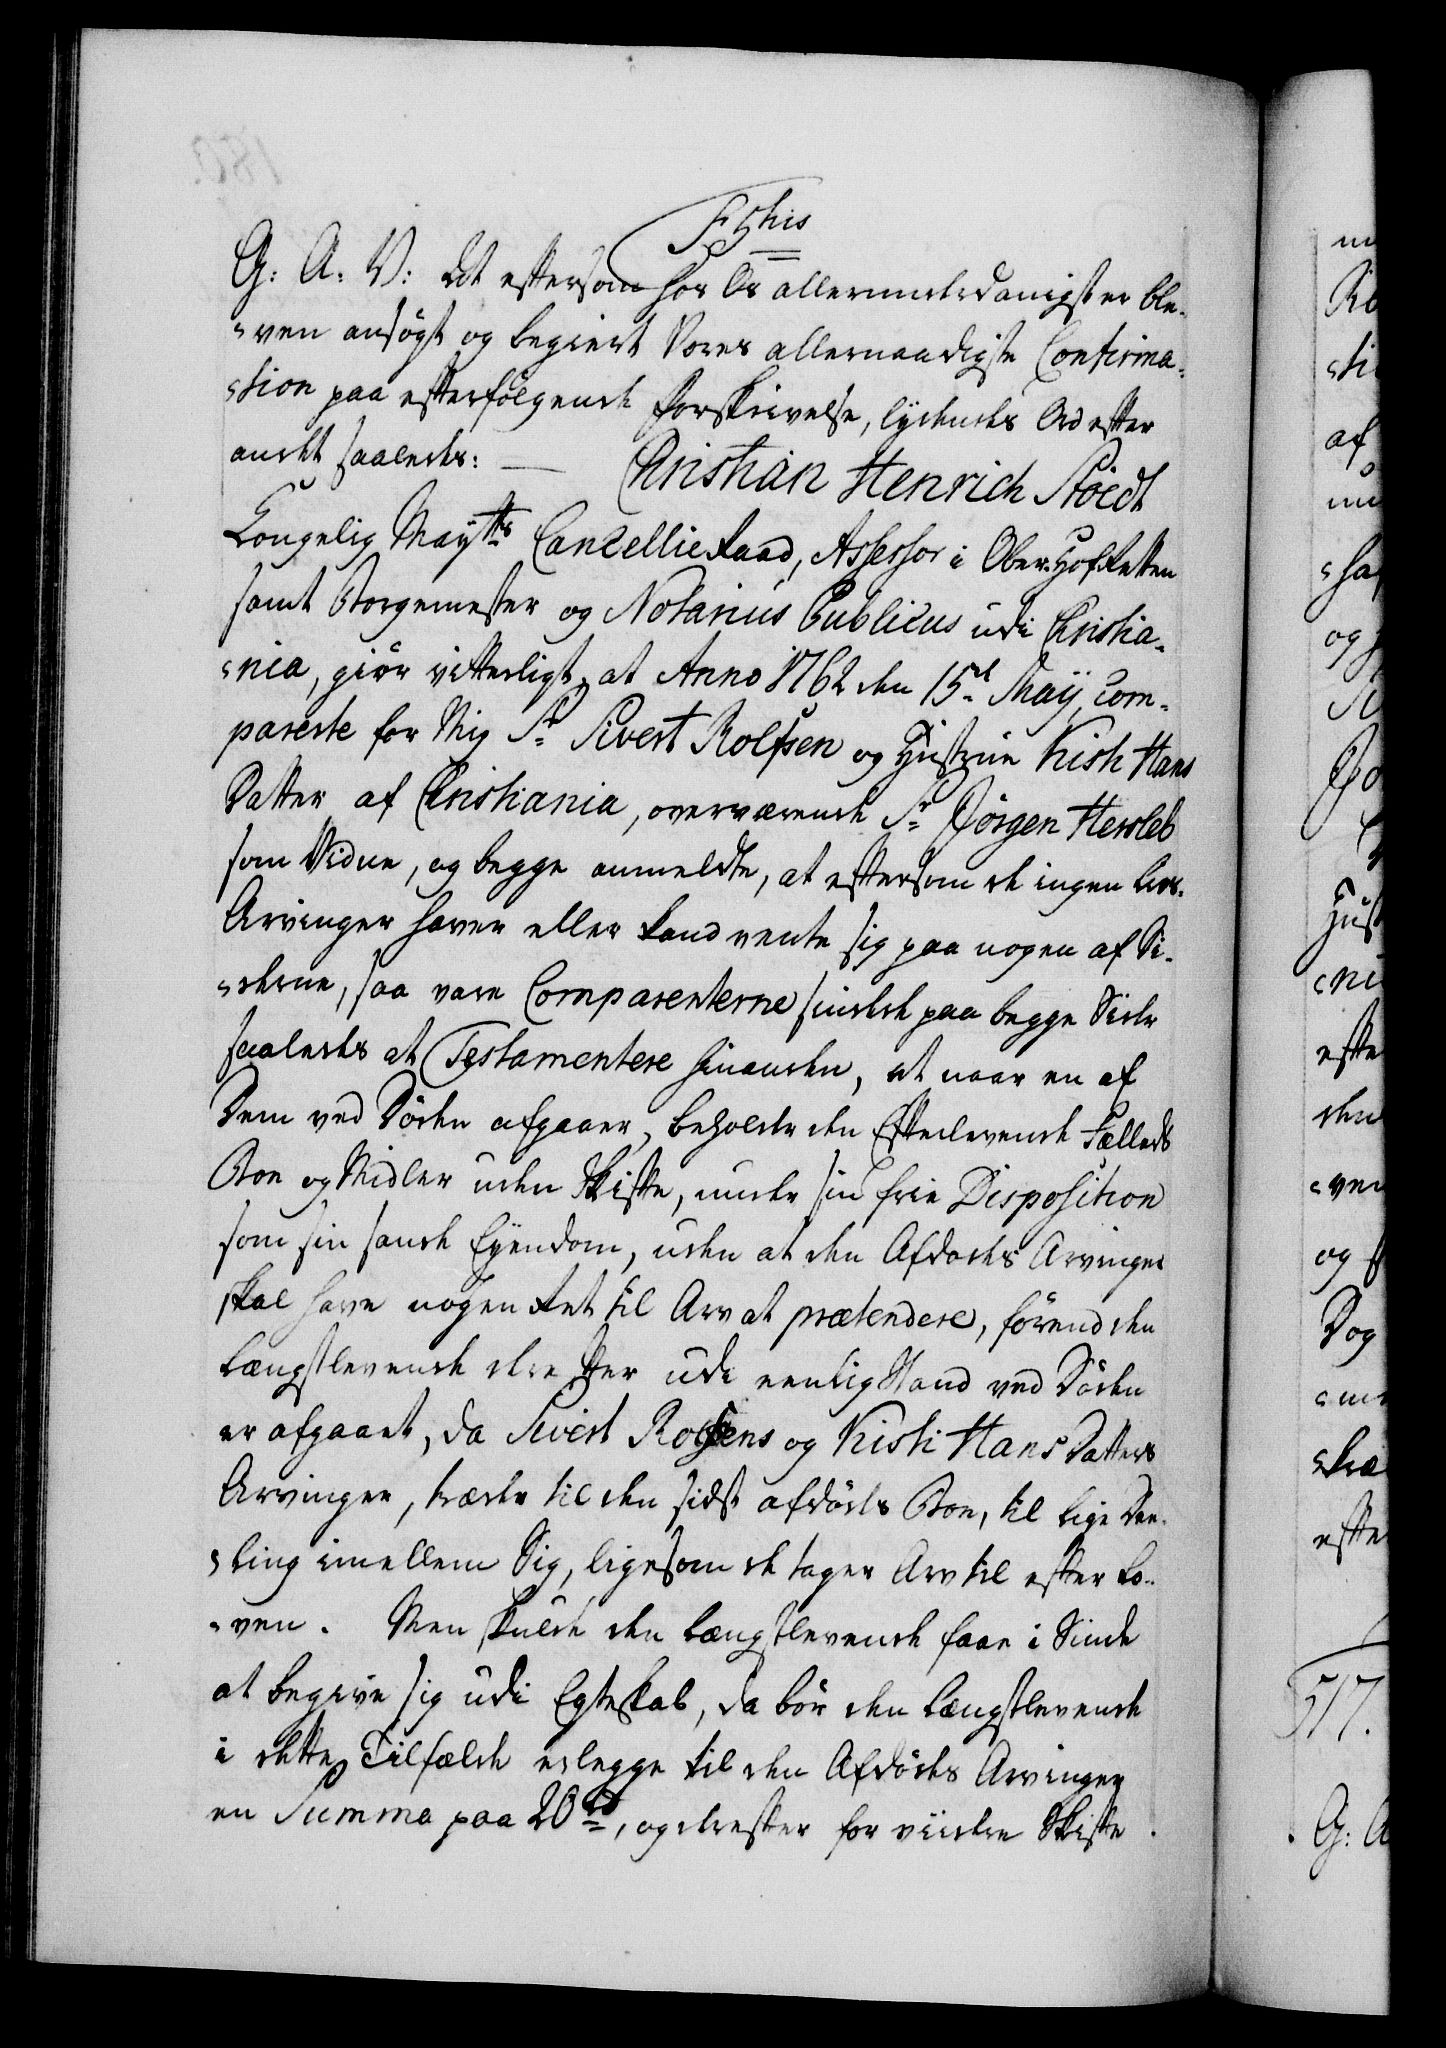 F 5this
G: A: V: At eftersom hos Os allerunderdanigst er ble-
-ven ansögt og begiert Vores allernaadigste Confirma-
-tion paa efterfölgende Forskrivelse, lydendes Ord efter
andet saaledes: — Christian Henrich Stöedt
Kongelig Mayts Cancellie Raad, Assessor i Ober-Hof-Retten
samt Borgemester og Notarius Publicus udi Christia-
-nia, giör vitterligt, at Anno 1762 den 15de Maij, com-
parerte for Mig Sr Sivert Rolfsen og Hustrue Kisti Hans
Datter af Christiania, overværende Sr Jörgen Hersleb
som Vidne, og begge anmeldte, at eftersom de ingen Livs-
Arvinger haver eller kand vente sig paa nogen af Si-
-derne, saa vare Comparenterne sindede paa begge Sider
saaledes at Testamentere hinanden, at naar en af
Dem ved Döden afgaaer, beholder den Efterlevende Fælleds
Boe og Midler uden Skifte, under sin frie Disposition
som sin sande Eyendom, uden at den Afdödes Arvinger
skal have nogen Ret til Arv at prætendere, förend den
længstlevende derefter udi eenlig Stand ved Döden
er afgaaet, da Sivert Rolfsens og Kisti Hans Datters
Arvinger, træder til den sidst afdödes Boe, til lige Dee-
-ling imellem Sig, ligesom de tager Arv til efter Lo-
-ven. Men skulde den længstlevende faae i Sinde
at begive sig udi Egteskab, da bör den længstlevende
i dette Tilfælde erlegge til den Afdödes Arvinger
en Summa paa 20 rd, og derefter for viidere Skifte
517.